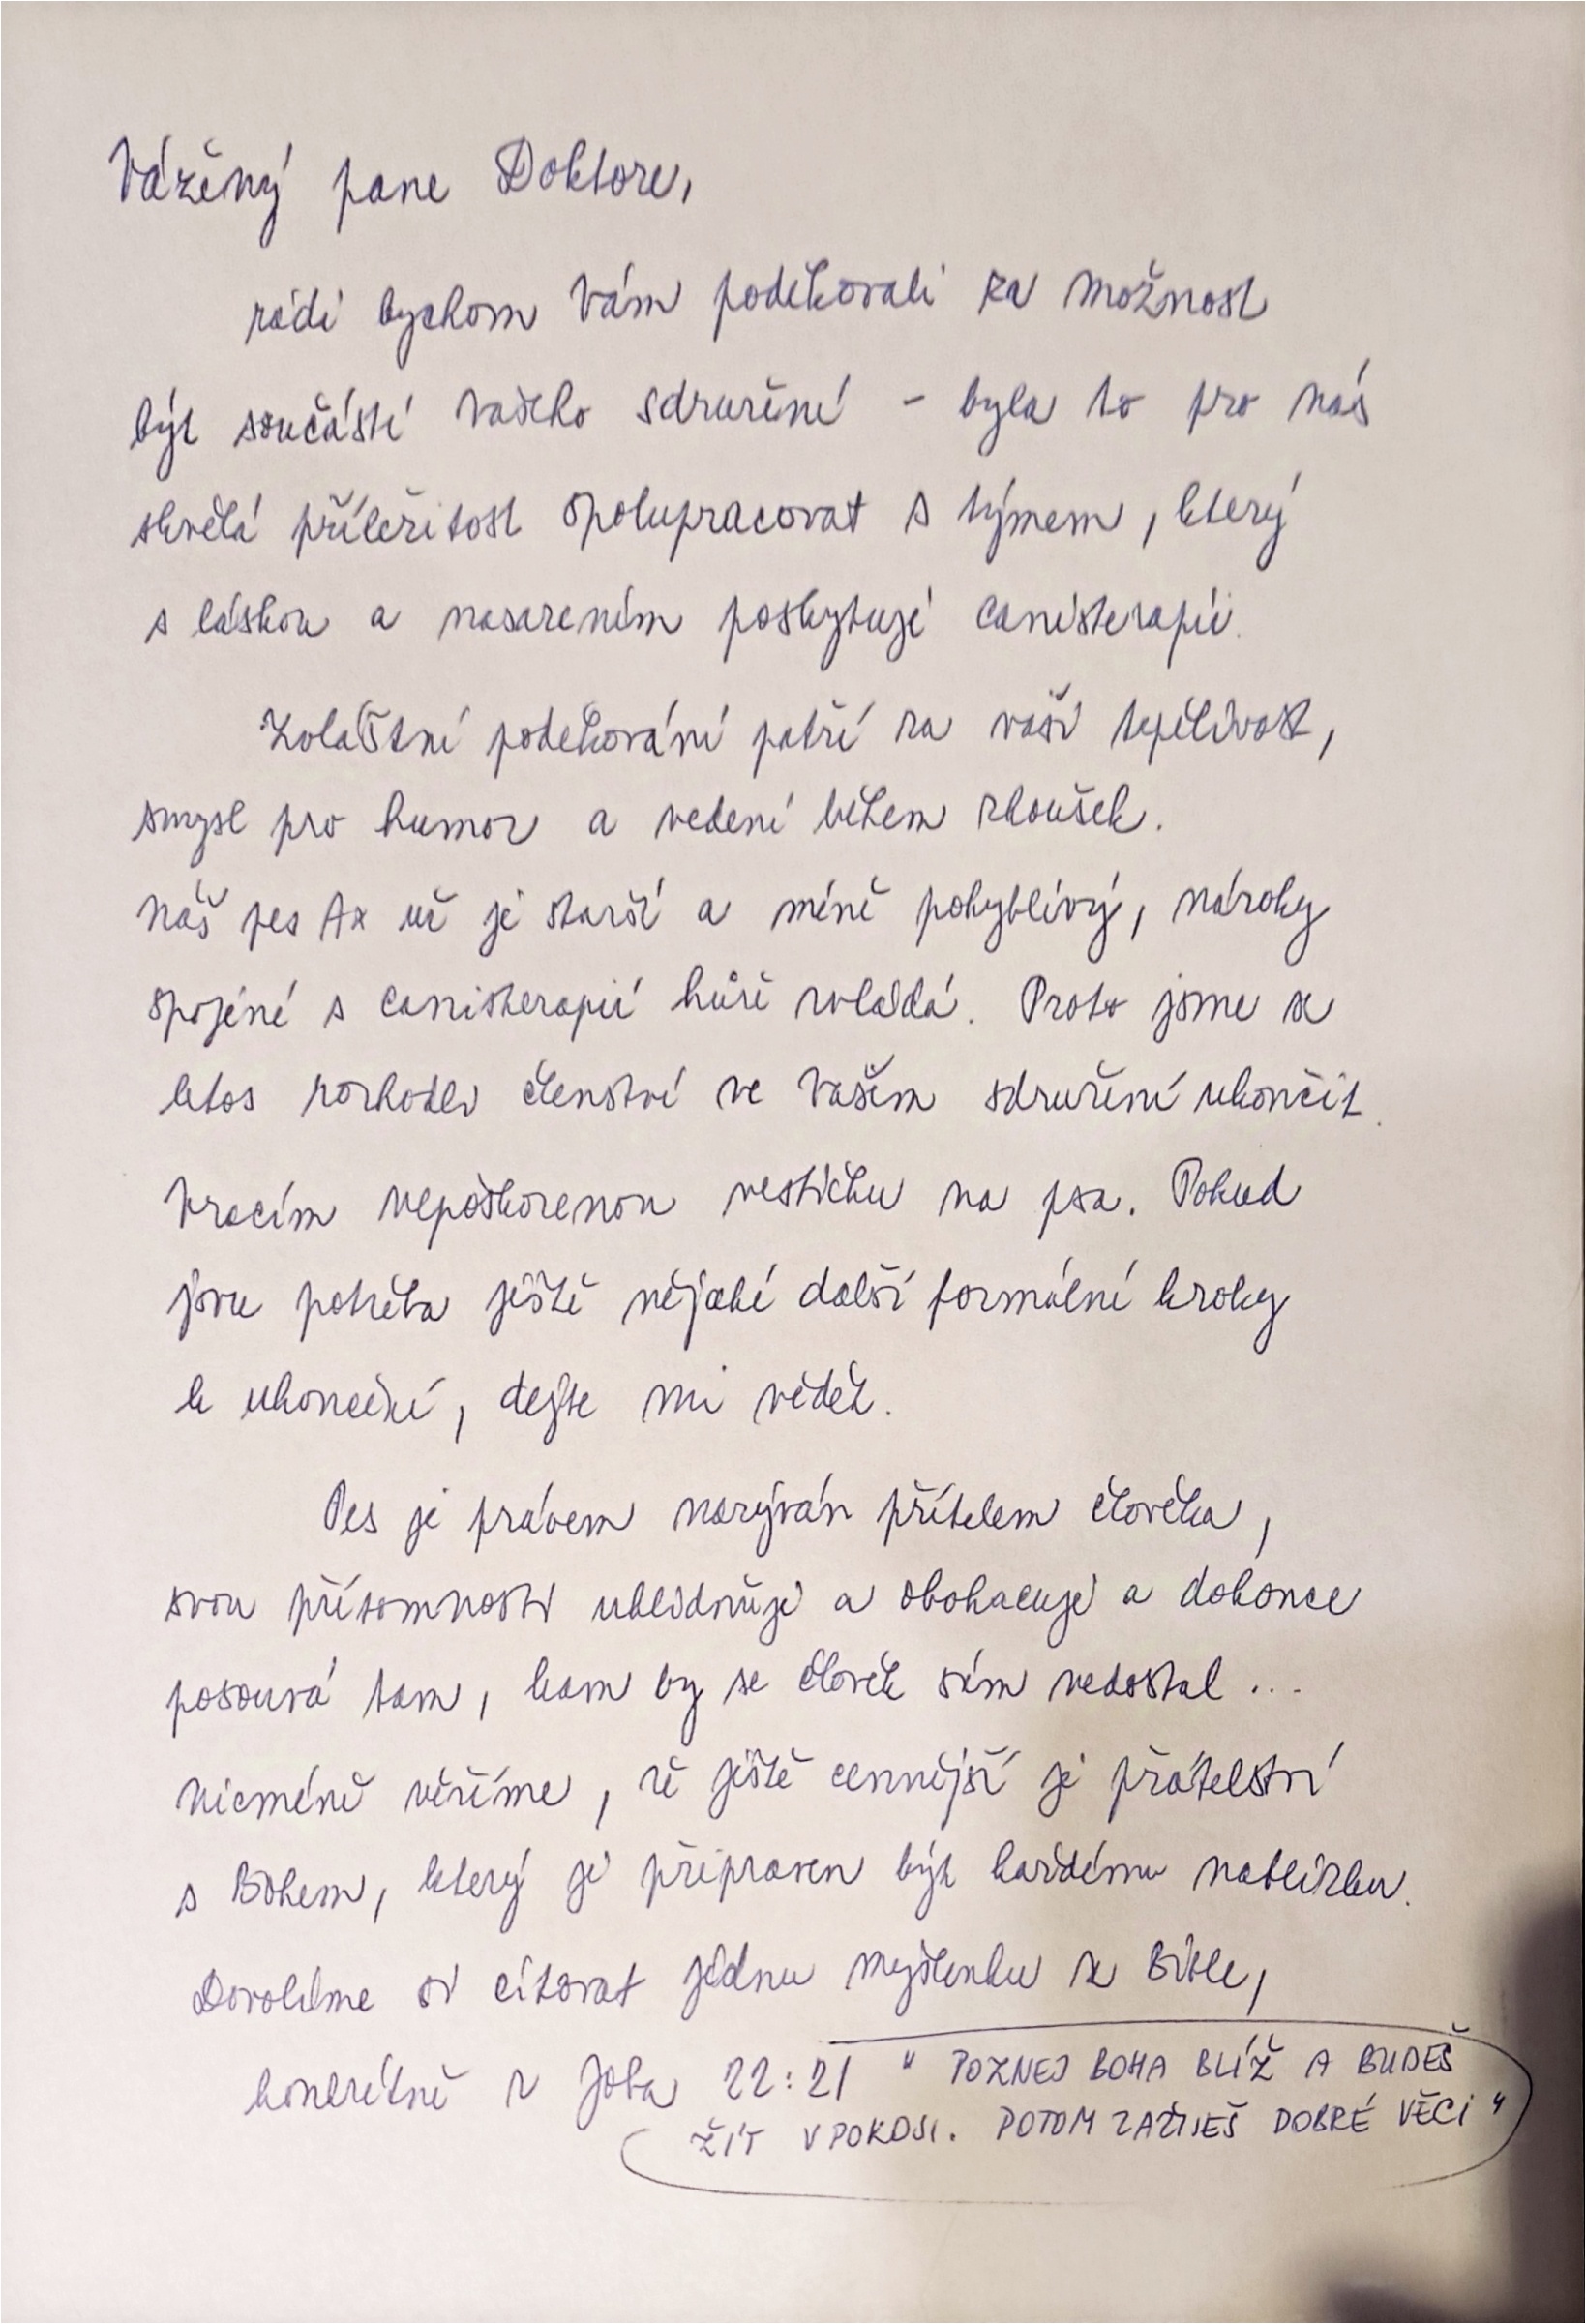 Vážený pane Doktore,
rádi bychom Vám poděkovali za možnost
být součástí vašeho sdružení - byla to pro nás
skvělá příležitost spolupracovat s týmem, který
s láskou a nasazením poskytuje canisterapii.
Zvláštní poděkování patří za vaši trpělivost,
smysl pro humor a vedení během zkoušek.
Náš pes Ax už je starší a méně pohyblivý, nároky
spojené s canisterapií hůře zvládá. Proto jsme se
letos rozhodli členství ve Vašem sdružení ukončit.
Vracím nepoškozenou vestičku na psa. Pokud
jsou potřeba ještě nějaké další formální kroky
k ukončení, dejte mi vědět.
Pes je právem nazýván přítelem člověka,
svou přítomností uklidňuje a obohacuje a dokonce
posouvá tam, kam by se člověk sám nedostal ...
Nicméně věříme, že ještě cennější je přátelství
s Bohem, který je připraven být každému nablízku.
Dovolíme si citovat jednu myšlenku ze Bible,
konkrétně z Joba 22:21 "POZNEJ BOHA BLÍŽ A BUDEŠ
ŽÍT V POKOJI. POTOM ZAŽIJEŠ DOBRÉ VĚCI"